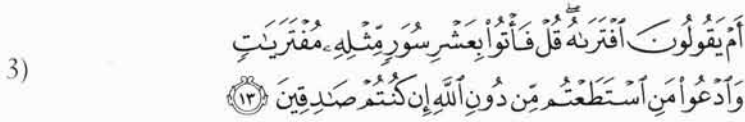 3)
أَمْ يَقُولُونَ ٱفْتَرَىٰهُ ۖ قُلْ فَأْتُوا۟ بِعَشْرِ سُوَرٍ مِّثْلِهِۦ مُفْتَرَيَـٰتٍ
وَٱدْعُوا۟ مَنِ ٱسْتَطَعْتُم مِّن دُونِ ٱللَّهِ إِن كُنتُمْ صَـٰدِقِينَ ١٣